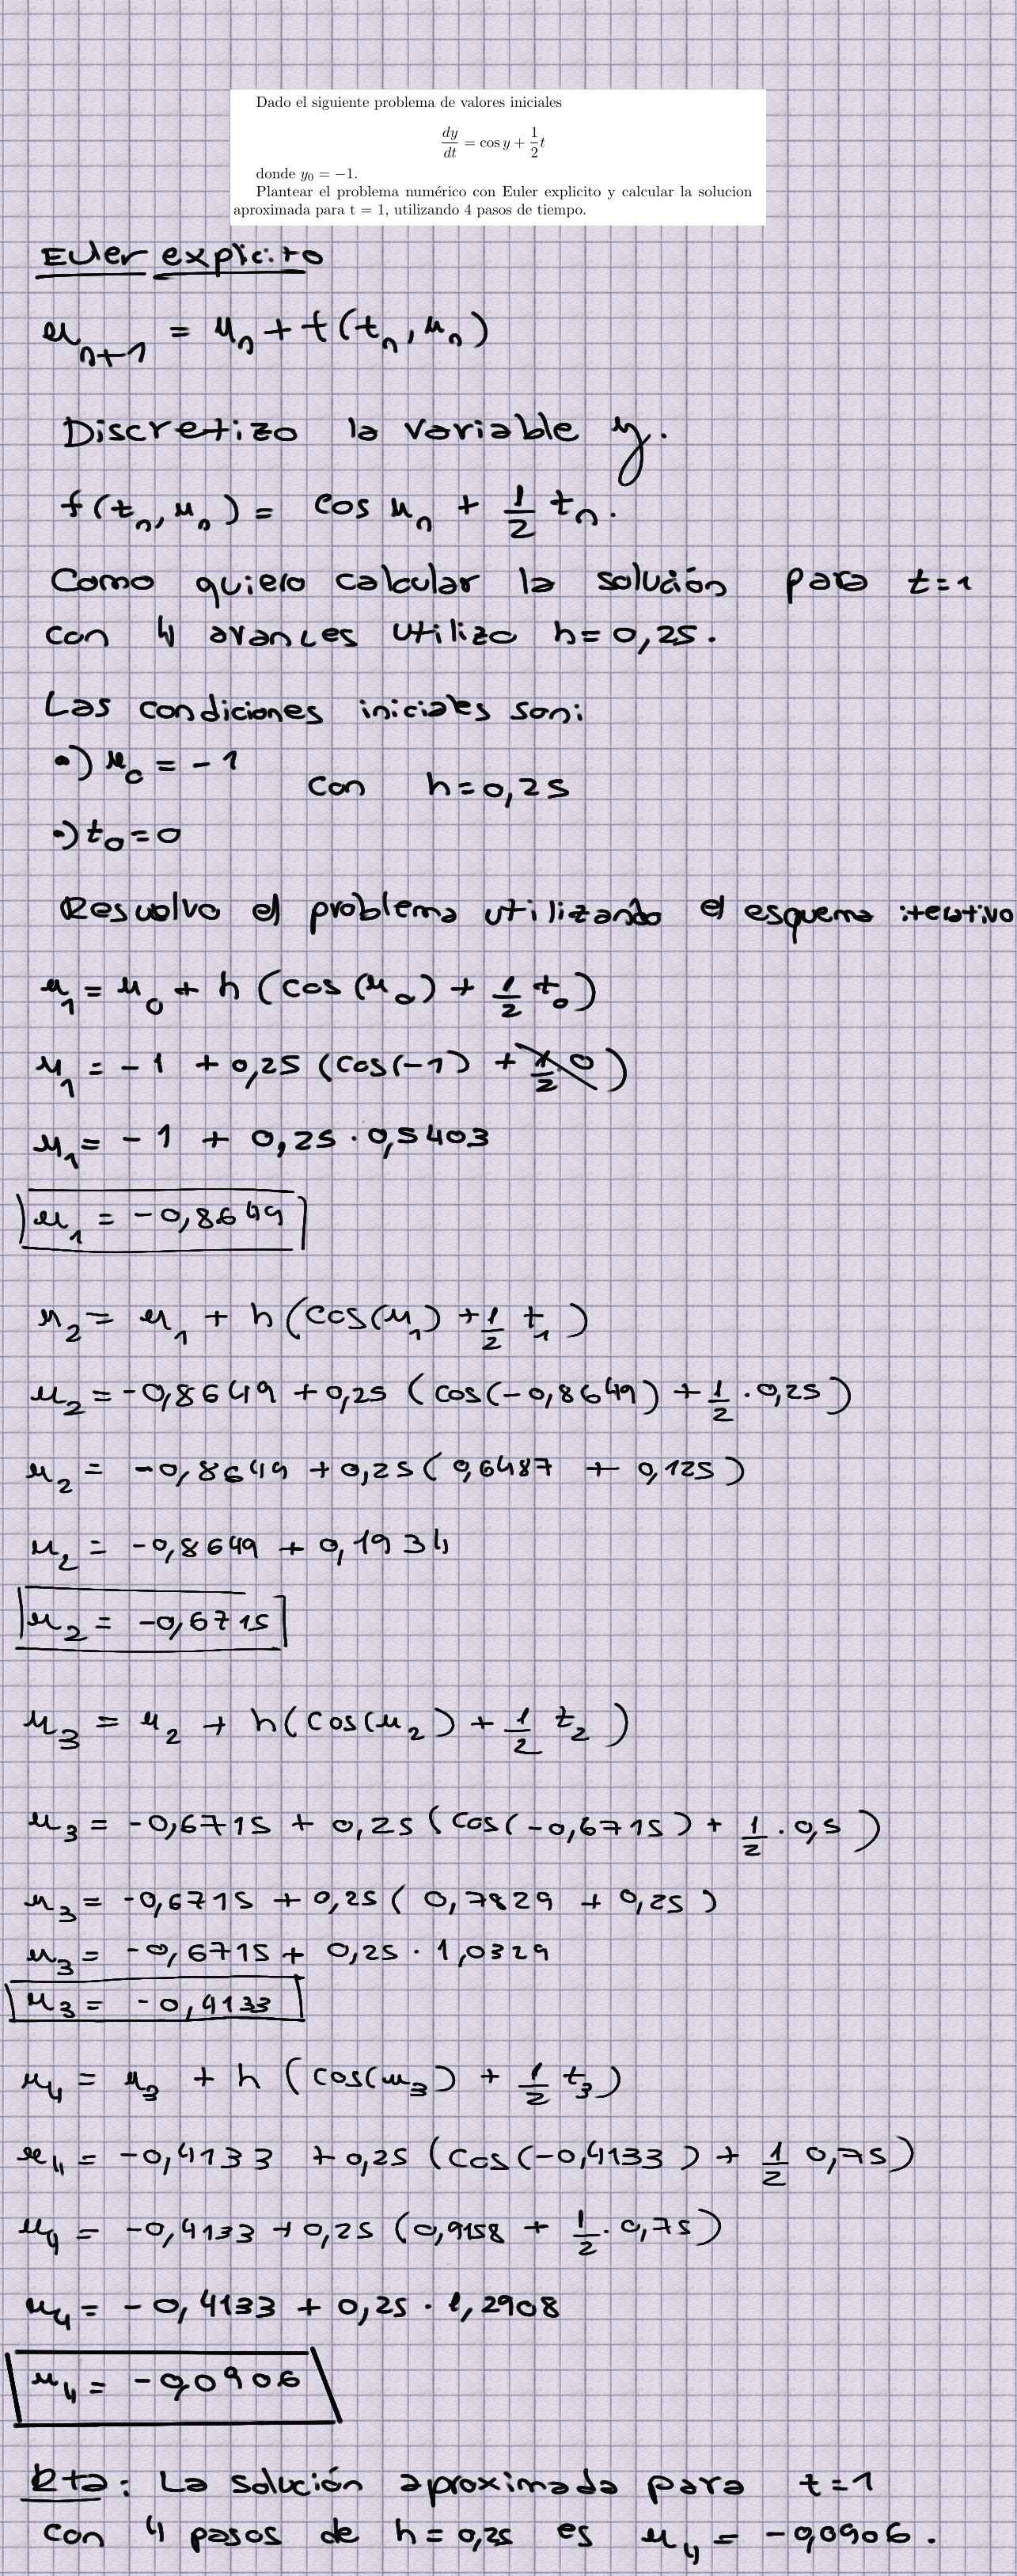 Dado el siguiente problema de valores iniciales
dy/dt = cos y + 1/2 t
donde y₀ = −1.
Plantear el problema numérico con Euler explicito y calcular la solucion
aproximada para t = 1, utilizando 4 pasos de tiempo.
Euler explicito
u_{n+1} = u_n + f(t_n, u_n)
Discretizo la variable y.
f(t_n, u_n) = cos u_n + 1/2 t_n.
Como quiero calcular la solución para t=1
con 4 avances utilizo h=0,25.
Las condiciones iniciales son:
•) u₀ = -1
con h=0,25
•) t₀=0
Resuelvo el problema utilizando el esquema iterativo
u₁ = u₀ + h (cos(u₀) + 1/2 t₀)
u₁ = -1 + 0,25 (cos(-1) + 1/2·0)
u₁ = -1 + 0,25 · 0,5403
u₁ = -0,8649
u₂ = u₁ + h(cos(u₁) + 1/2 t₁)
u₂ = -0,8649 + 0,25 (cos(-0,8649) + 1/2 · 0,25)
u₂ = -0,8649 + 0,25 (0,6487 + 0,125)
u₂ = -0,8649 + 0,1934
u₂ = -0,6715
u₃ = u₂ + h(cos(u₂) + 1/2 t₂)
u₃ = -0,6715 + 0,25 (cos(-0,6715) + 1/2 · 0,5)
u₃ = -0,6715 + 0,25 (0,7829 + 0,25)
u₃ = -0,6715 + 0,25 · 1,0329
u₃ = -0,4133
u₄ = u₃ + h (cos(u₃) + 1/2 t₃)
u₄ = -0,4133 + 0,25 (cos(-0,4133) + 1/2 0,75)
u₄ = -0,4133 + 0,25 (0,9158 + 1/2 · 0,75)
u₄ = -0,4133 + 0,25 · 1,2908
u₄ = -0,0906
Rta: La solución aproximada para t=1
con 4 pasos de h=0,25 es u₄ = -0,0906.